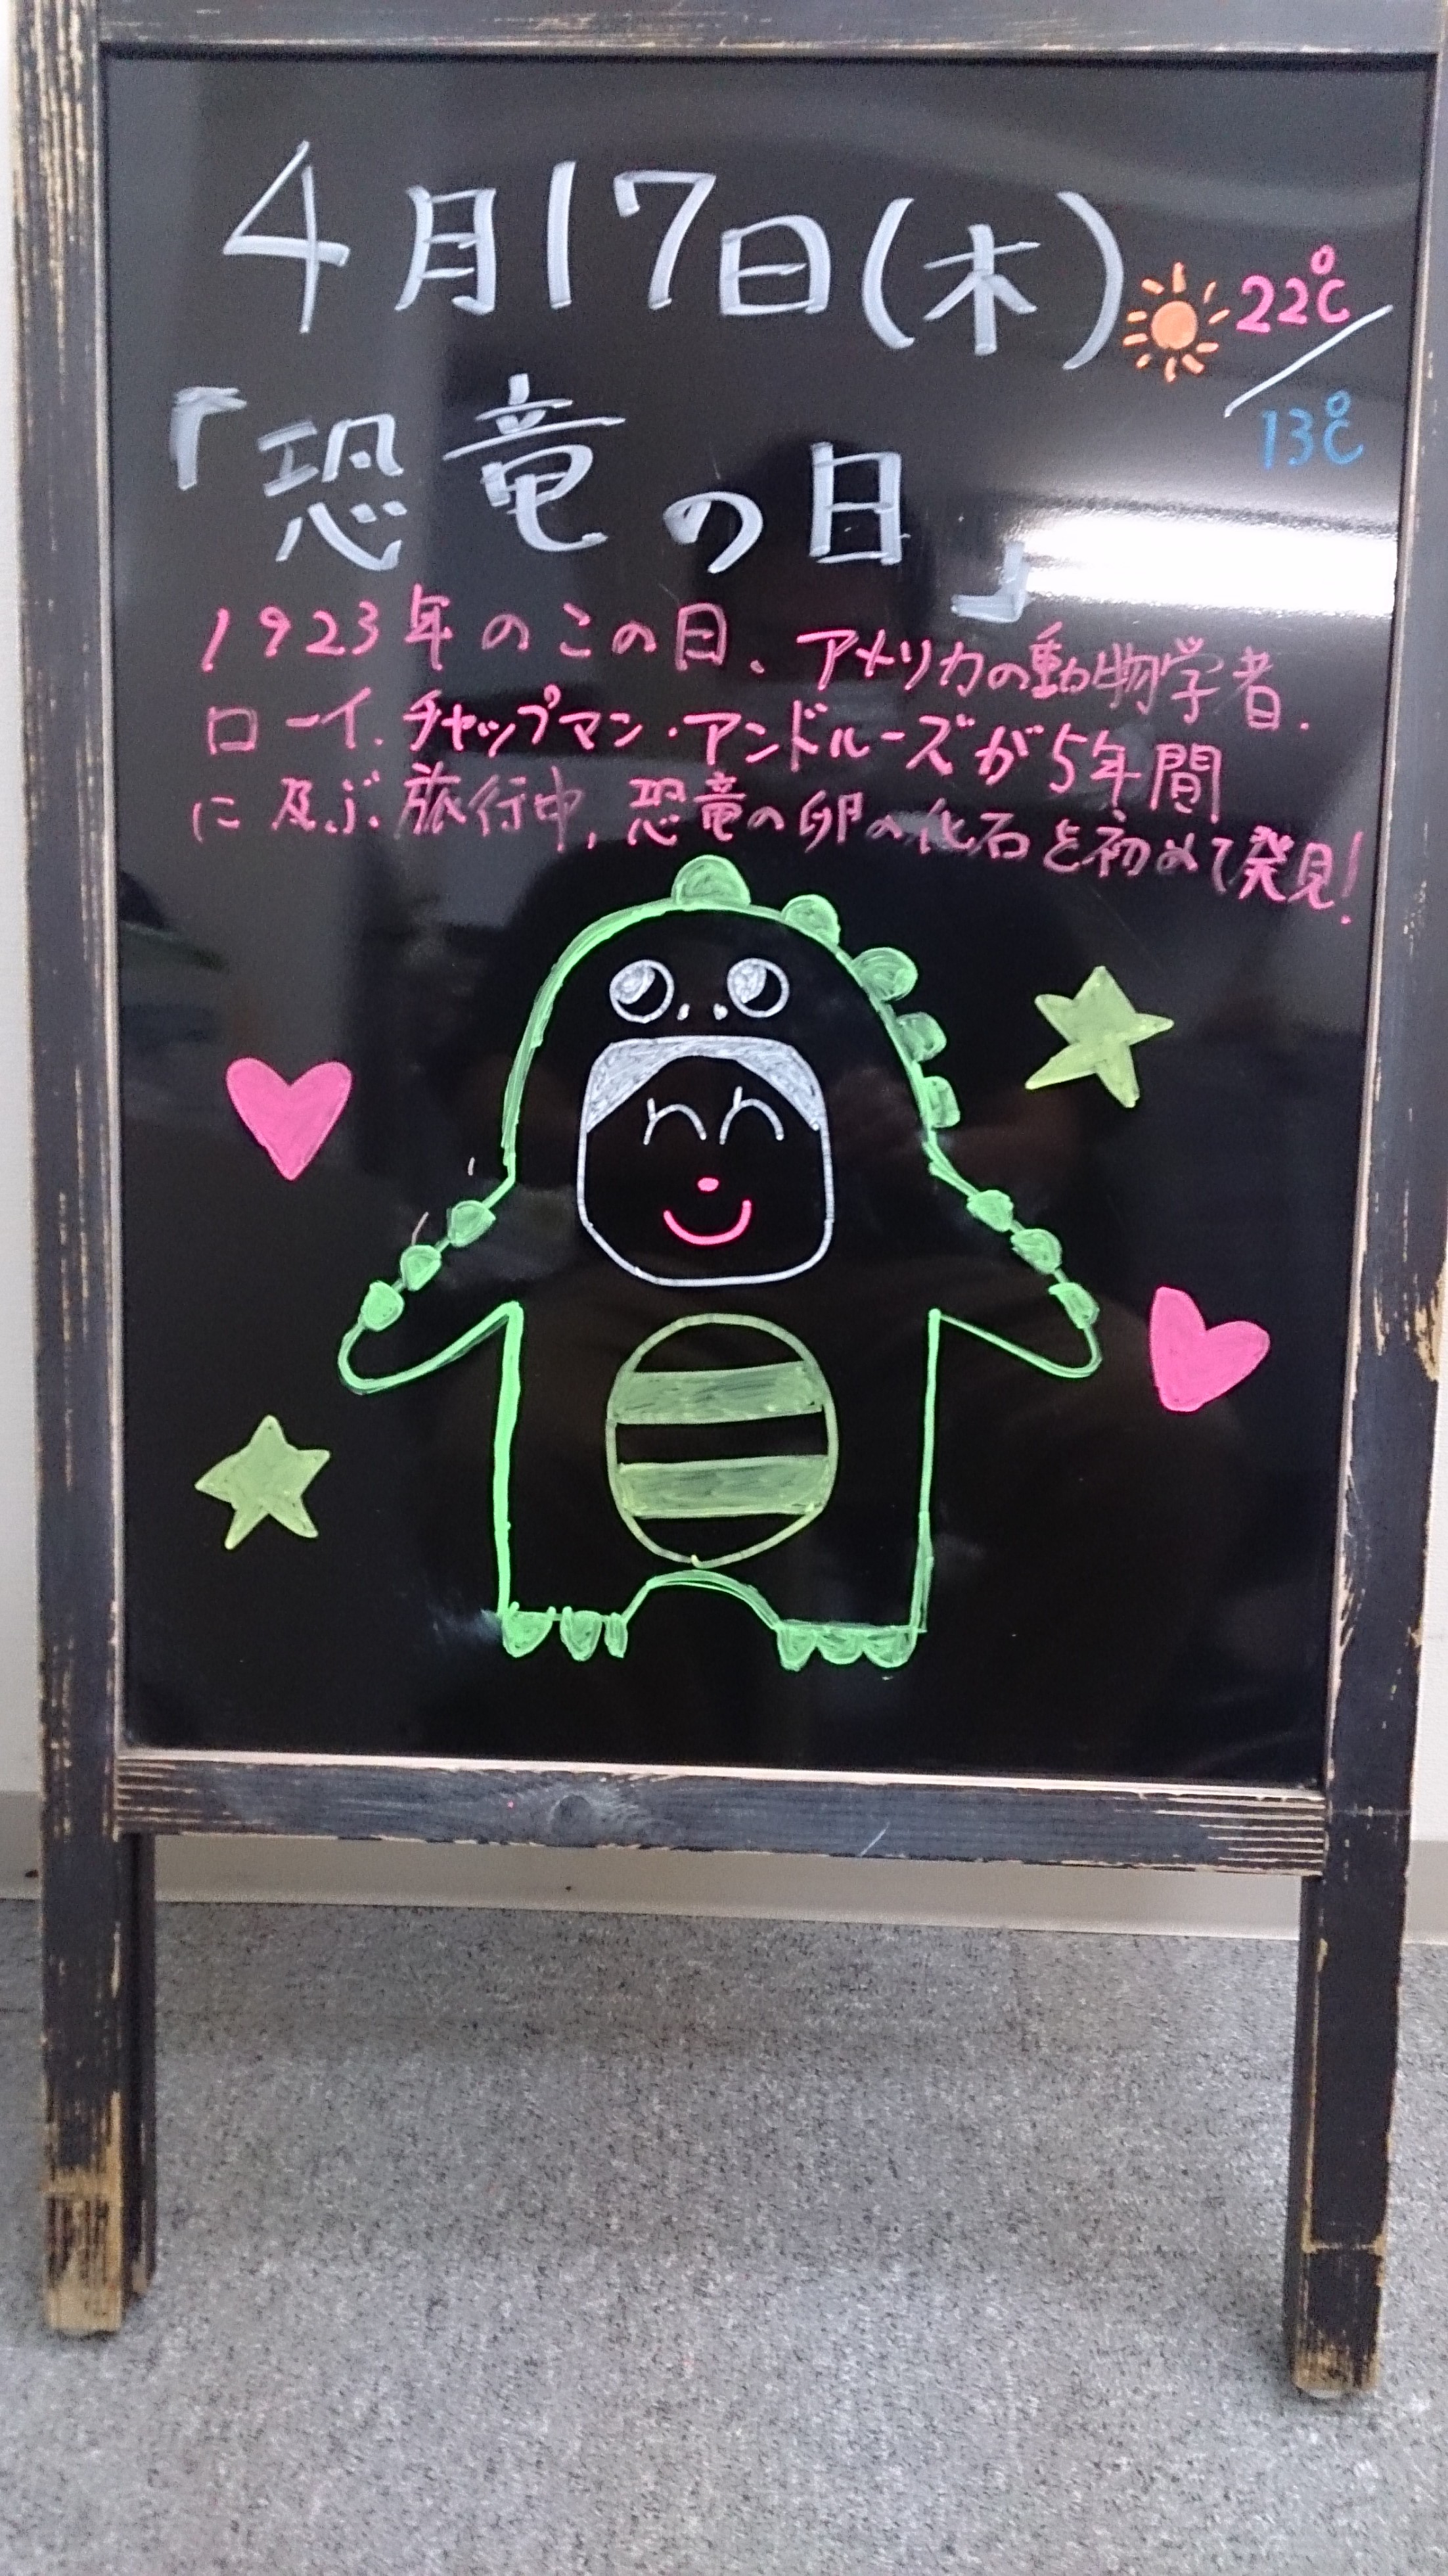 4月17日(木) 22℃/13℃
『恐竜の日』
1923年のこの日、アメリカの動物学者.
ロイ.チャップマン・アンドルーズが5年間
に及ぶ旅行中,恐竜の卵の化石を初めて発見!